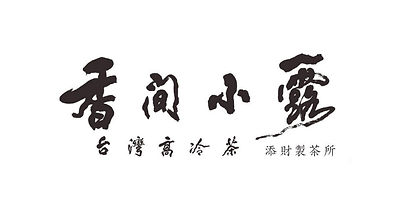 香間小露
台灣高冷茶 添財製茶所